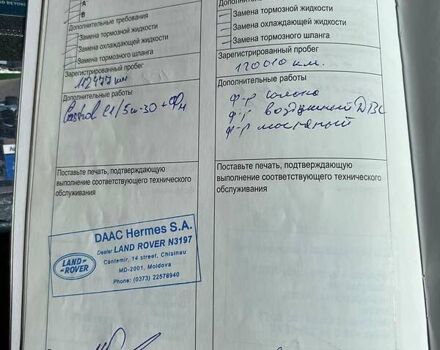 A
B
Дополнительные требования
Замена тормозной жидкости
Замена охлаждающей жидкости
Замена тормозного шланга
Зарегистрированный пробег
112477 км
Дополнительные работы
Castrol C1/5w-30 + Фм
Поставьте печать, подтверждающую
выполнение соответствующего технического
обслуживания
DAAC Hermes S.A.
Dealer LAND ROVER N3197
Cantemir, 14 street, Chisinau
MD-2001, Moldova
Phone: (0373) 22578940
LAND-
ROVER
Замена тормозной жидкости
Замена охлаждающей жидкости
Замена тормозного шланга
Зарегистрированный пробег
120010 км.
Дополнительные работы
ф-р салона
ф-р воздушный ДВС
ф-р масляный
Поставьте печать, подтверждающую
выполнение соответствующего технического
обслуживания